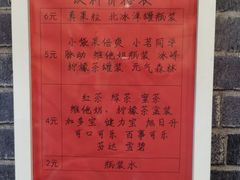 饮料价格表
6元 真果粒 北冰洋罐瓶装
5元 小袋果倍爽 小茗同学
脉动 维他奶瓶装 冰峰
柠檬茶罐装 元气森林
4元 红茶 绿茶 蜜茶
维他奶、柠檬茶盒装
加多宝 健力宝 旭日升
可口可乐 百事可乐
芬达 雪碧
2元 瓶装水